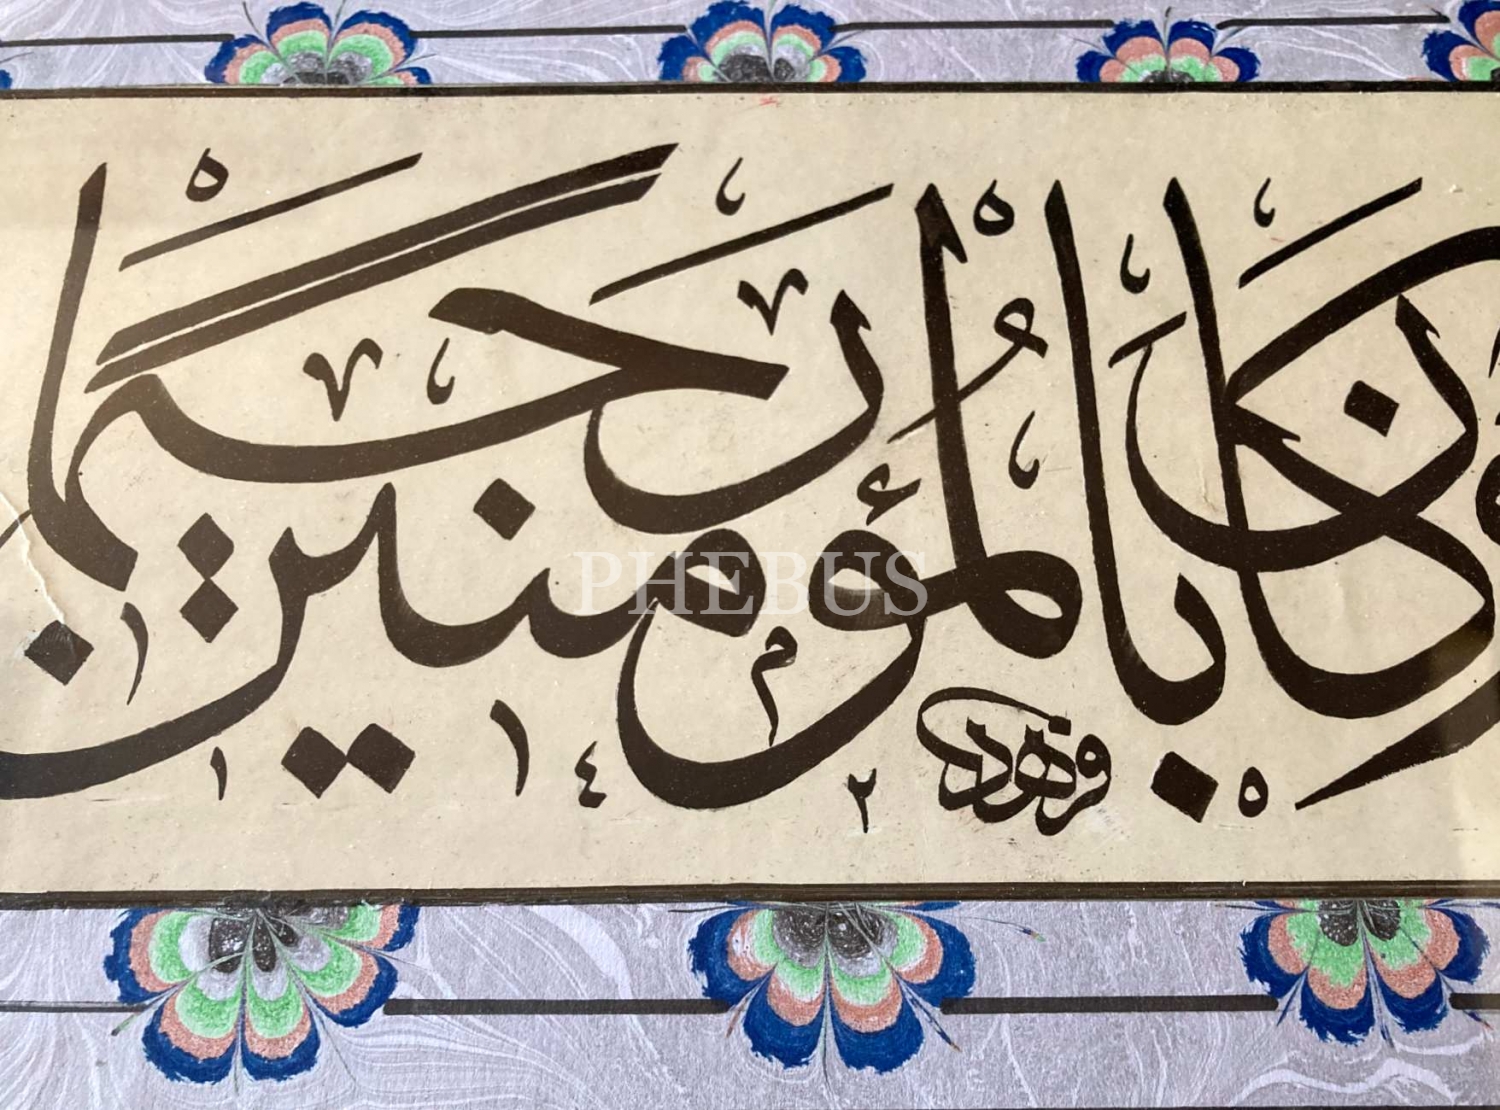 وكان بالمؤمنين رحيما
PHEBUS